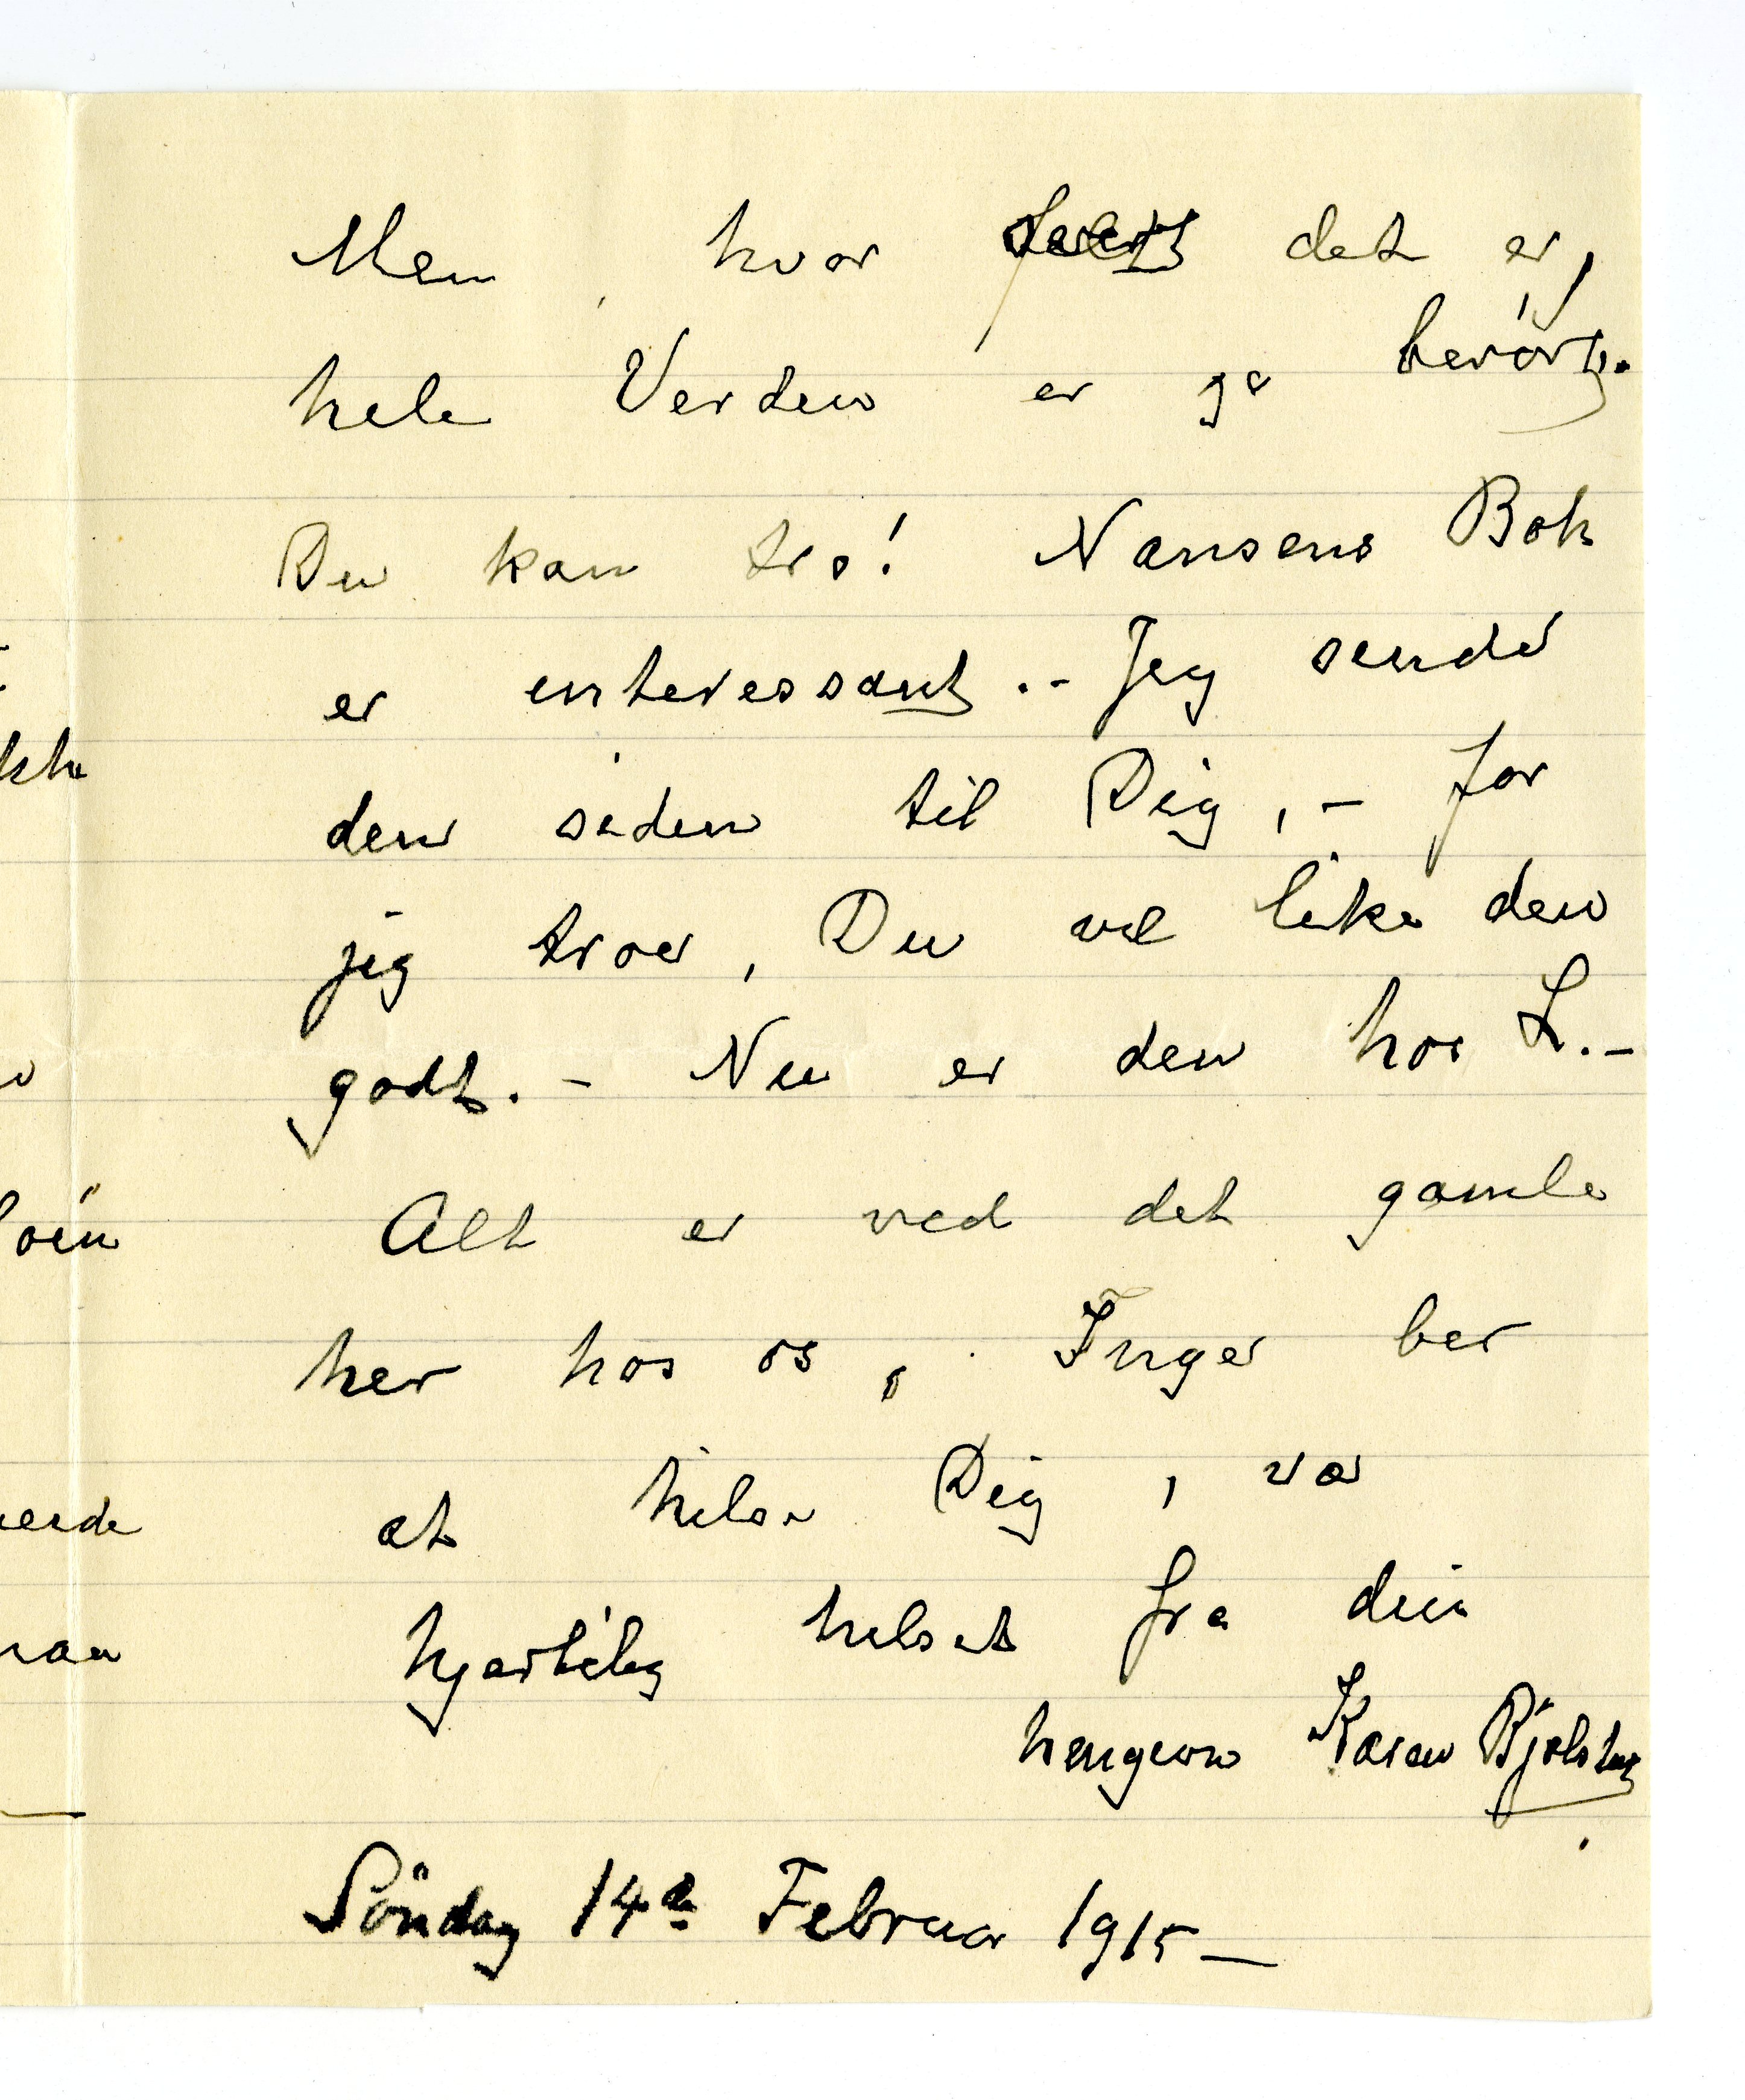 Men hvor det er,
hele Verden er jo berört.
Du kan tro! Nansens Bok
er interessant. - Jeg sender
den siden til Dig, - for
jeg troer, Du vil like den
godt. - Nu er den hos L. -
Alt er ved det gamle
her hos os, Inger ber
at hilse Dig, vær
hjertelig hilset fra din
hengivne Karen Bjölstad
Söndag 14de Februar 1915 —